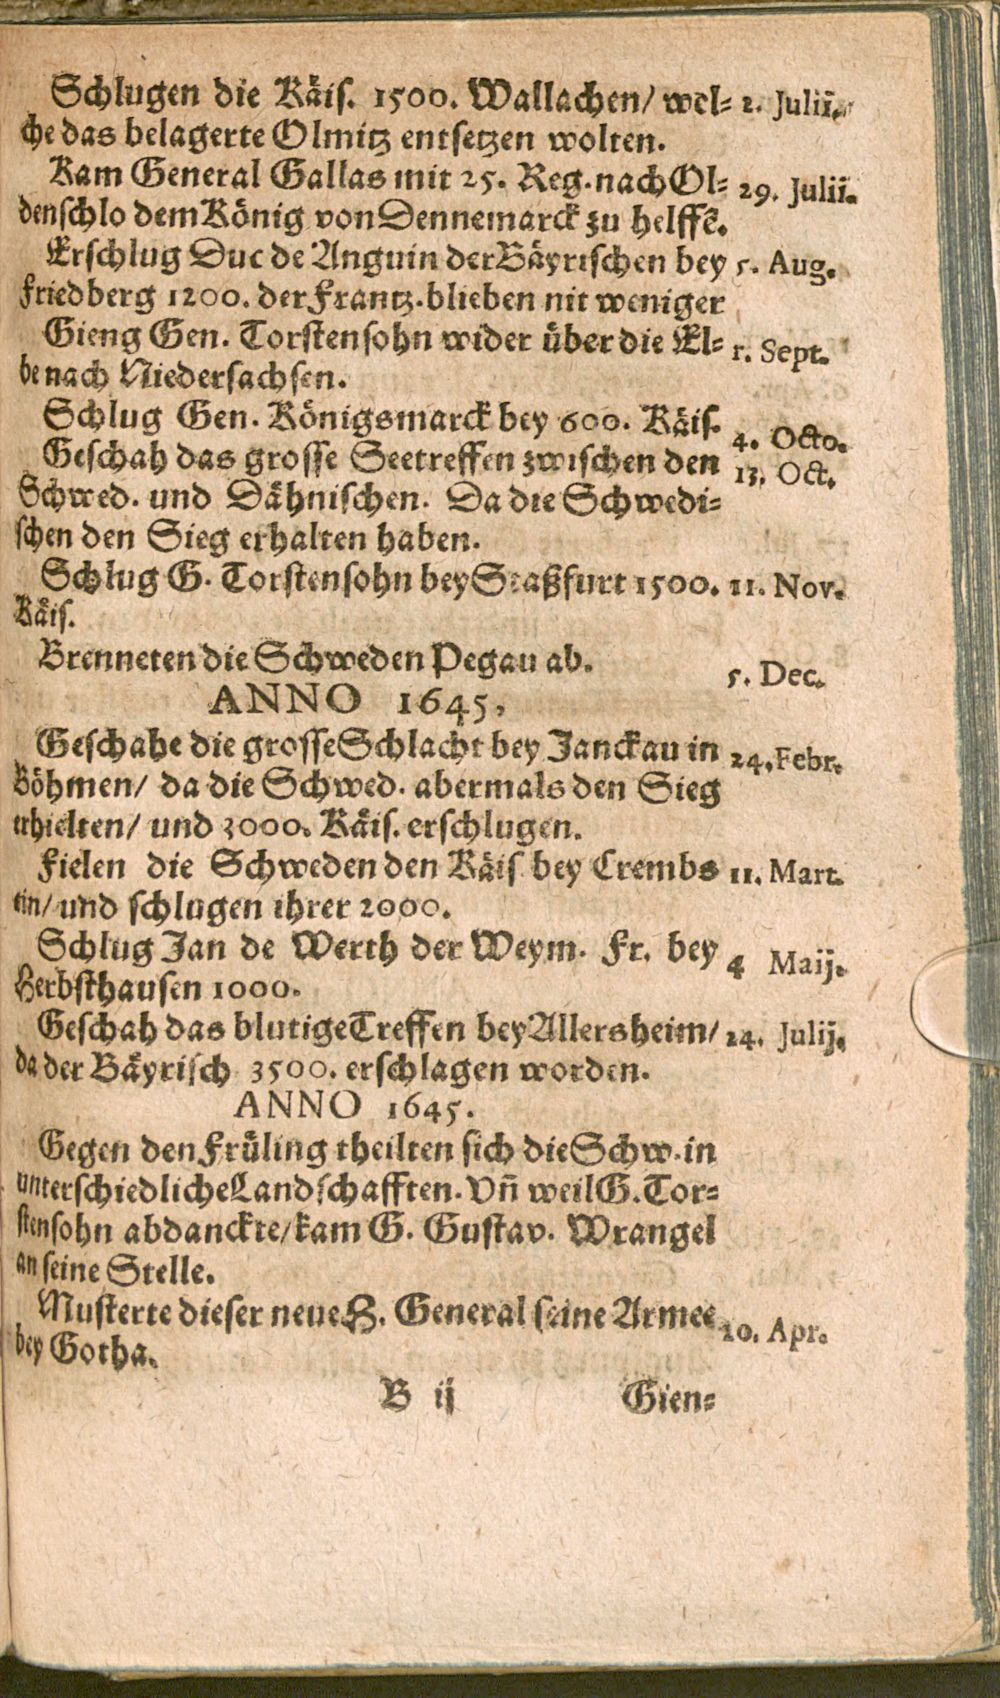 Schlugen die Käis. 1500. Wallachen/ wel= 2. Julii.
che das belagerte Olmitz entsetzen wolten.
Kam General Gallas mit 25. Reg. nach Ol= 29. Julii.
denschlo dem König von Dennemarck zu helffẽ.
Erschlug Duc de Anguin der Bäyrischen bey 5. Aug.
Friedberg 1200. der Frantz. blieben nit weniger
Gieng Gen. Torstensohn wider über die El= 1. Sept.
be nach Niedersachsen.
Schlug Gen. Königsmarck bey 600. Käis. 4. Octo.
Geschah das grosse Seetreffen zwischen den 13. Oct.
Schwed. und Dähnischen. Da die Schwedi=
schen den Sieg erhalten haben.
Schlug G. Torstensohn bey Staßfurt 1500. 11. Nov.
Käis.
Brenneten die Schweden Pegau ab. 5. Dec.
ANNO 1645.
Geschahe die grosse Schlacht bey Janckau in 24. Febr.
Böhmen/ da die Schwed. abermals den Sieg
erhielten/ und 3000. Käis. erschlugen.
Fielen die Schweden den Käis bey Crembs 11. Mart.
ein/ und schlugen ihrer 2000.
Schlug Jan de Werth der Weym. Fr. bey 4 Maij.
Herbsthausen 1000.
Geschah das blutige Treffen bey Allersheim/ 24. Julij.
da der Bäyrisch 3500. erschlagen worden.
ANNO 1645.
Gegen den Früling theilten sich die Schw. in
unterschiedliche Landschafften. Vñ weil G. Tor=
stensohn abdanckte/ kam G. Gustav. Wrangel
an seine Stelle.
Musterte dieser neue H. General seine Armee 10. Apr.
bey Gotha.
B ij Gien=